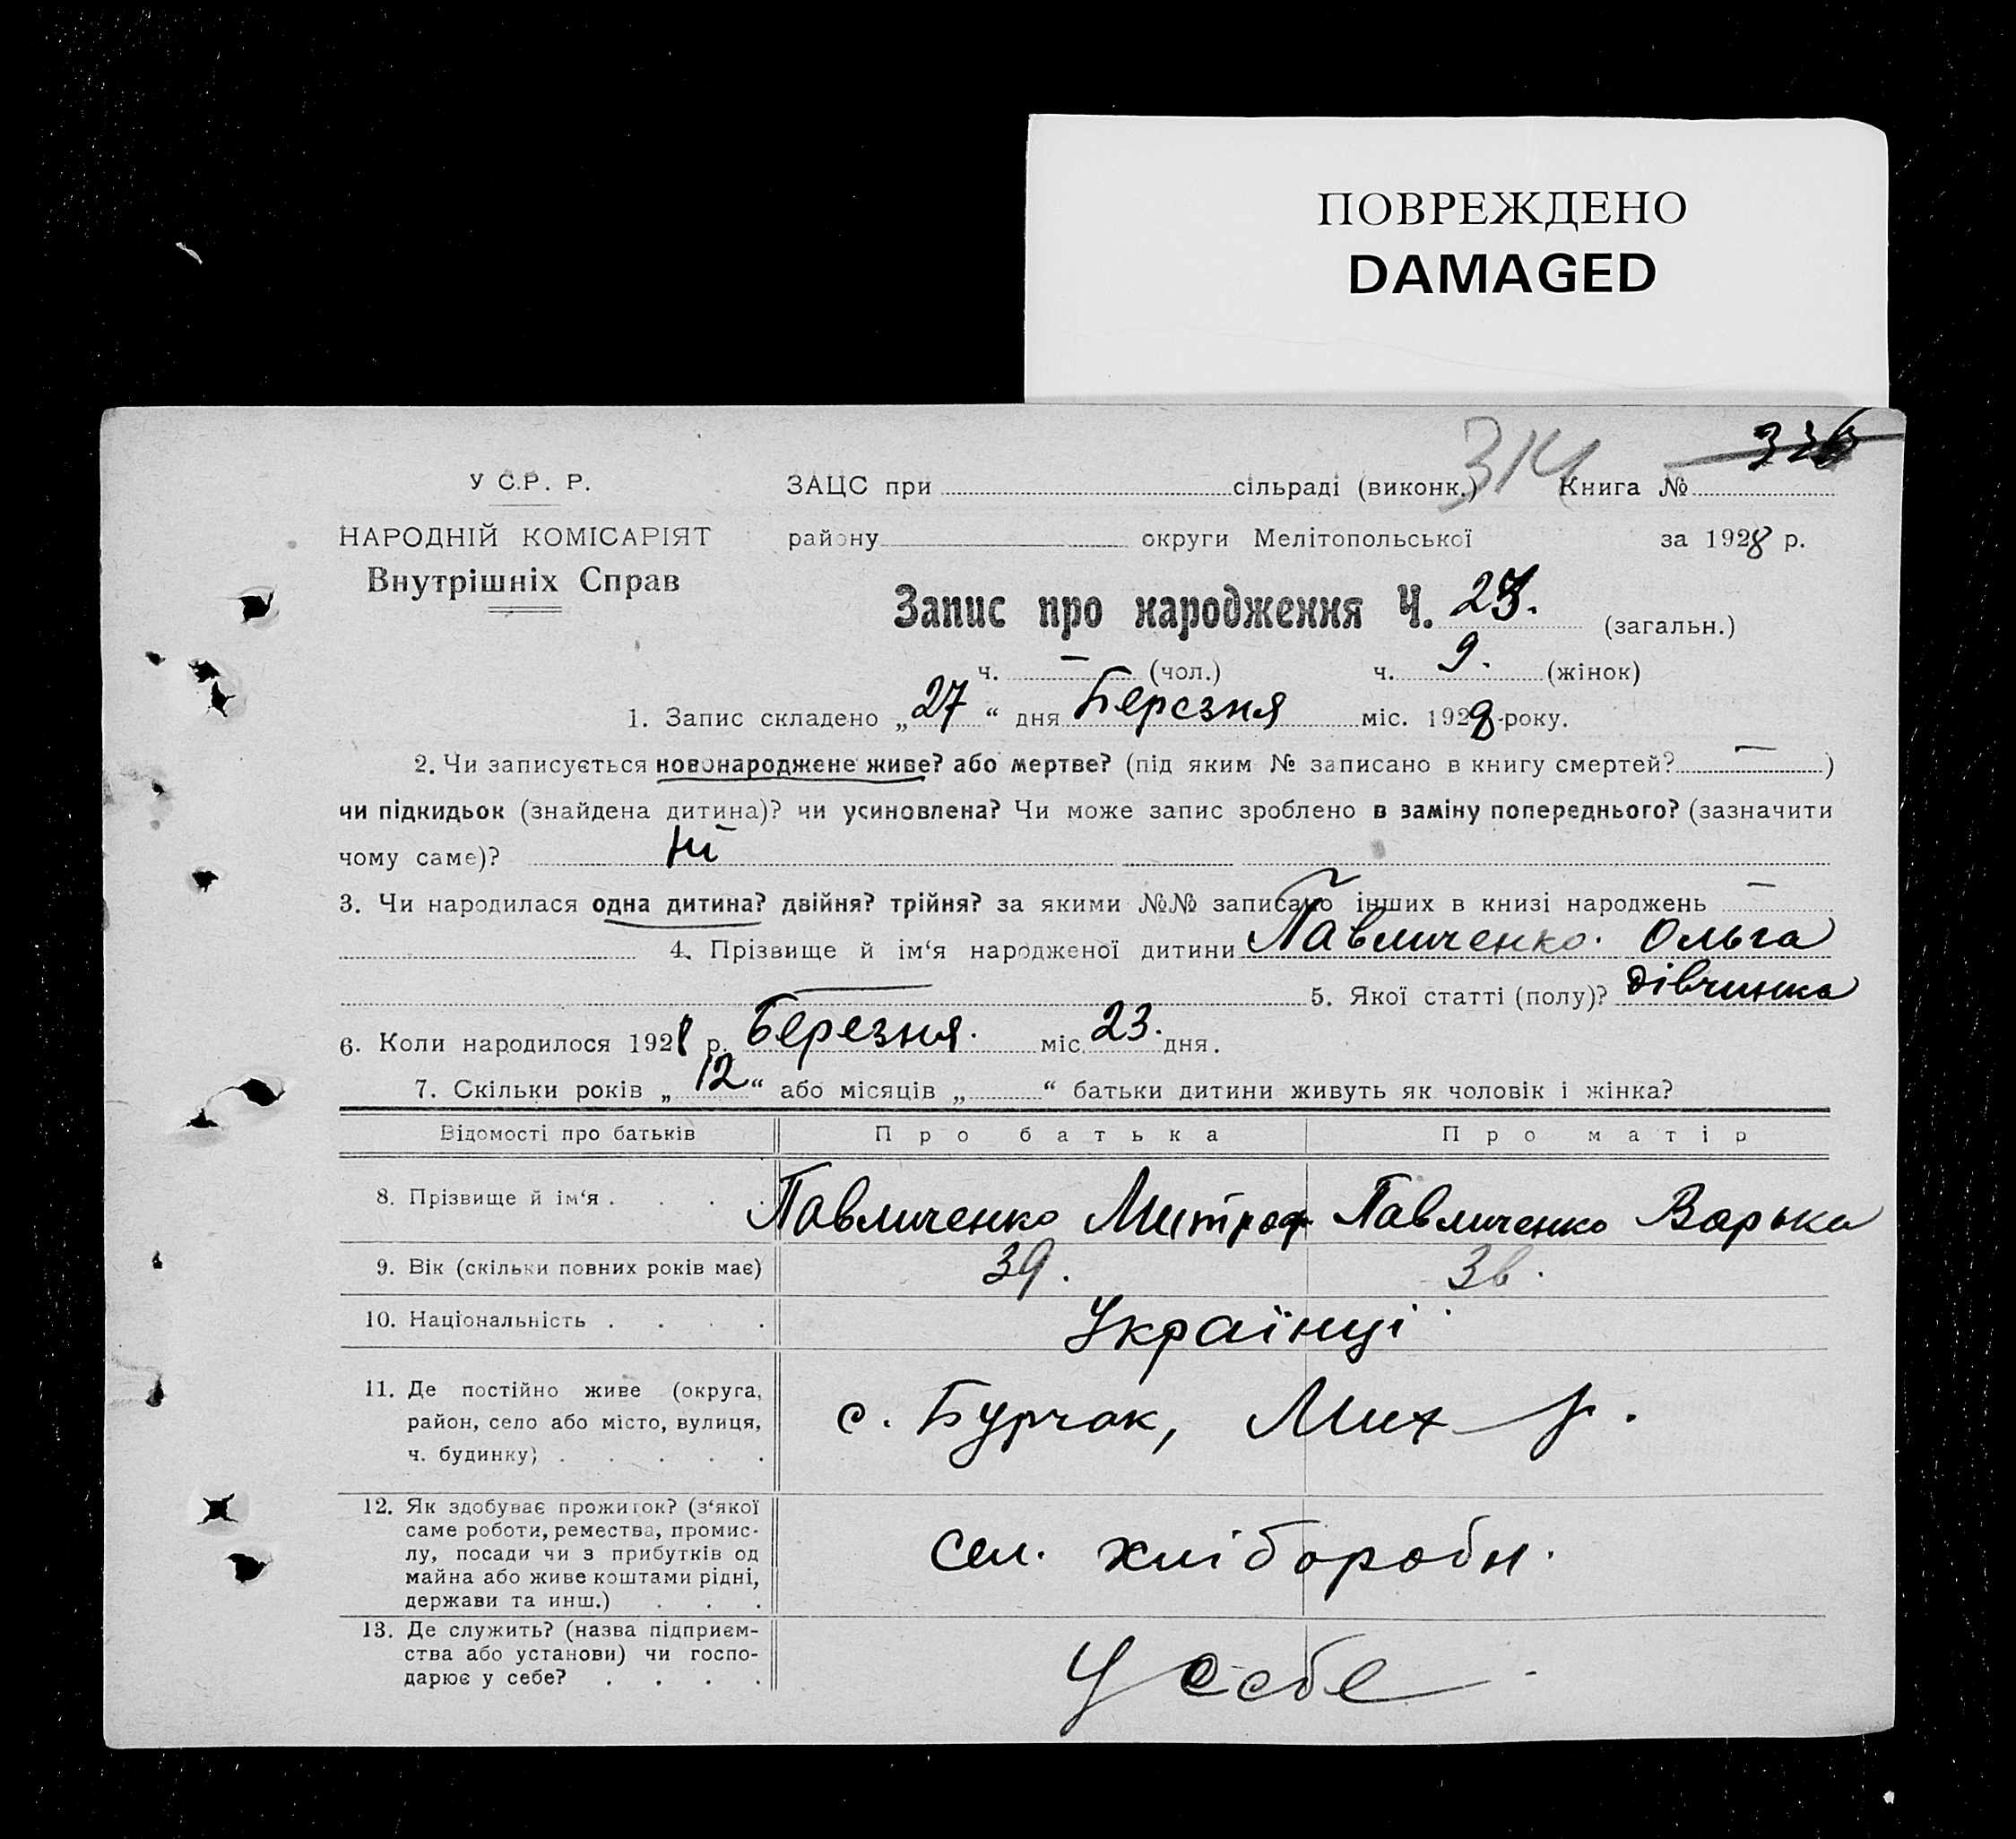 ПОВРЕЖДЕНО
DAMAGED
314 326
У С.Р. Р. ЗАЦС при сільраді (виконк.) Книга №
НАРОДНІЙ КОМІСАРІЯТ району округи Мелітопольської за 1928 р.
Внутрішніх Справ
Запис про народження Ч. 23. (загальн.)
ч. — (чол.) ч. 9. (жінок)
1. Запис складено „27“ дня Березня міс. 1928 року.
2. Чи записується новонароджене живе? або мертве? (під яким № записано в книгу смертей? — )
чи підкидьок (знайдена дитина)? чи усиновлена? Чи може запис зроблено в заміну попереднього? (зазначити
чому саме)? Ні
3. Чи народилася одна дитина? двійня? трійня? за якими №№ записано інших в книзі народжень —
4. Прізвище й ім‘я народженої дитини Павличенко. Ольга
5. Якої статті (полу)? дівчинка
6. Коли народилося 1928 р. Березня. міс. 23. дня.
7. Скільки років „12“ або місяців „ “ батьки дитини живуть як чоловік і жінка?
Відомості про батьків Про батька Про матір
8. Прізвище й ім‘я . . . . Павличенко Митроф. Павличенко Варька
9. Вік (скільки повних років має) 39. 36.
10. Національність . . . . Українці
11. Де постійно живе (округа,
район, село або місто, вулиця,
ч. будинку) . . . . . с. Бурчак, Мих р.
12. Як здобуває прожиток? (з‘якої
саме роботи, ремества, промис-
лу, посади чи з прибутків од
майна або живе коштами рідні,
держави та инш.) . . . сел. хліборобн.
13. Де служить? (назва підприєм-
ства або установи) чи госпо-
дарює у себе? . . . . У себе